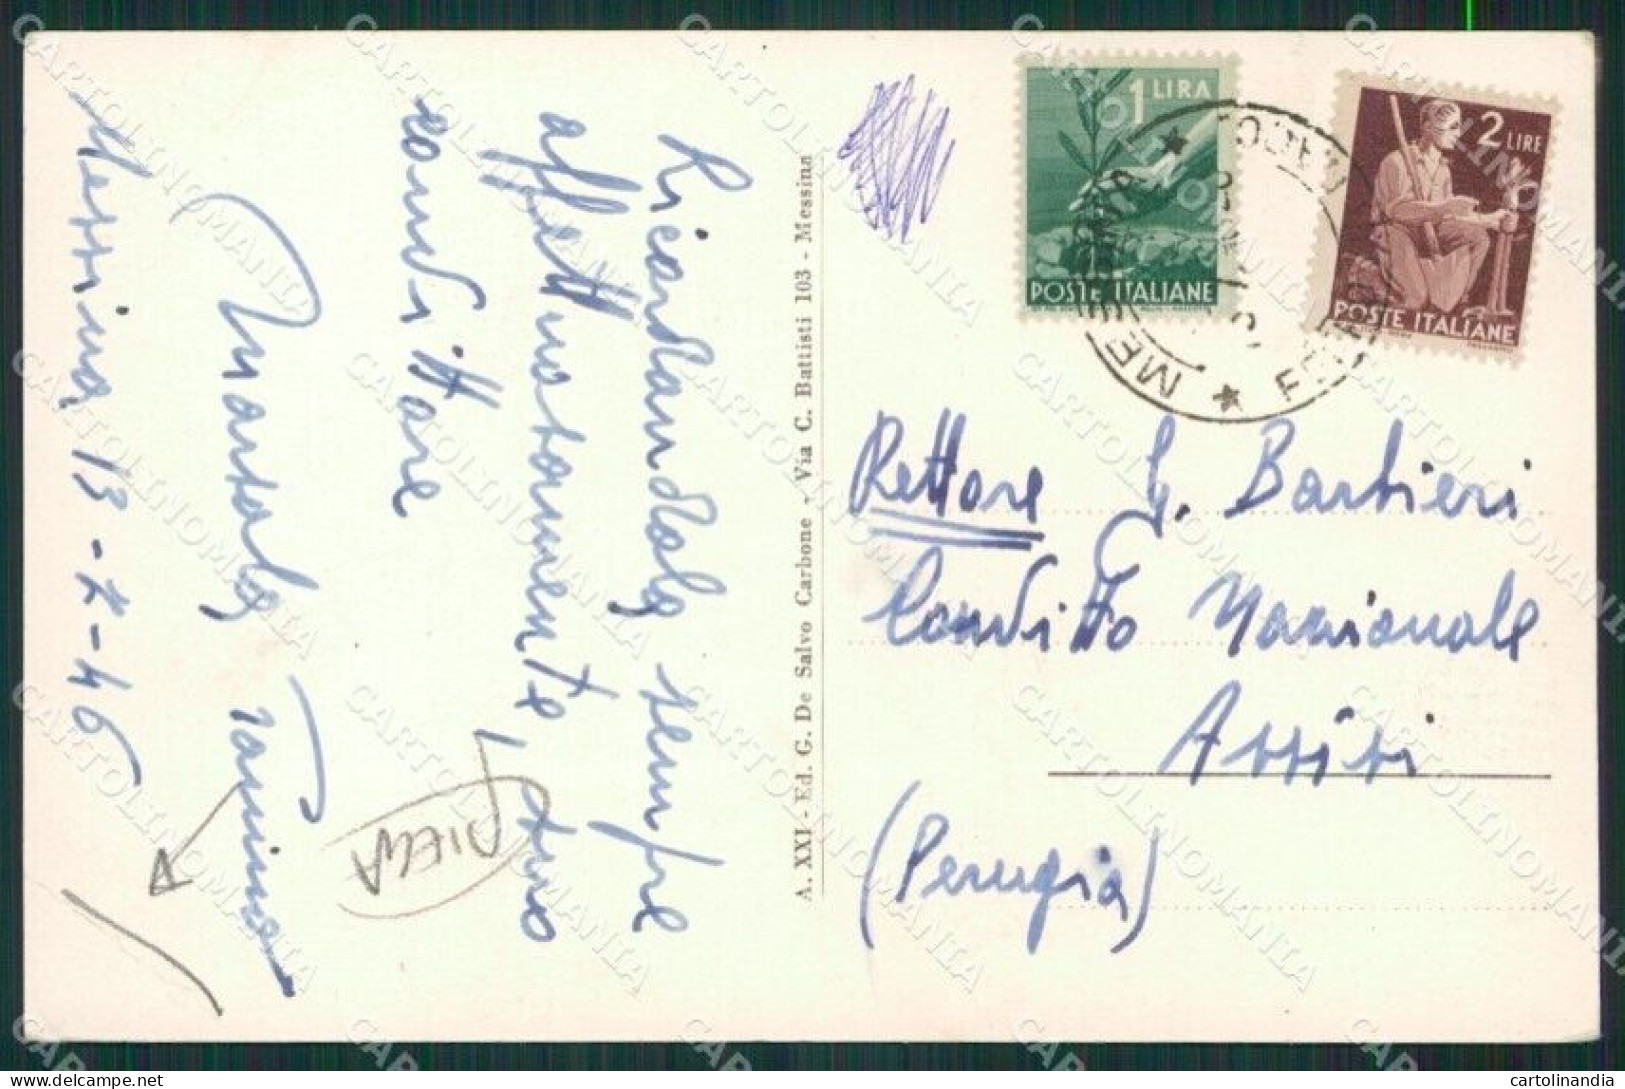 Ricordandola sempre
affettuosamente, suo
convittore
Messina 13-7-46
PIEGA
A. XXI - Ed. G. De Salvo Carbone - Via C. Battisti 103 - Messina
1 LIRA
POSTE ITALIANE
2 LIRE
POSTE ITALIANE
Rettore G. Barbieri
Convitto Nazionale
Assisi
(Perugia)
CARTOLINOMANIA
cartolinandia